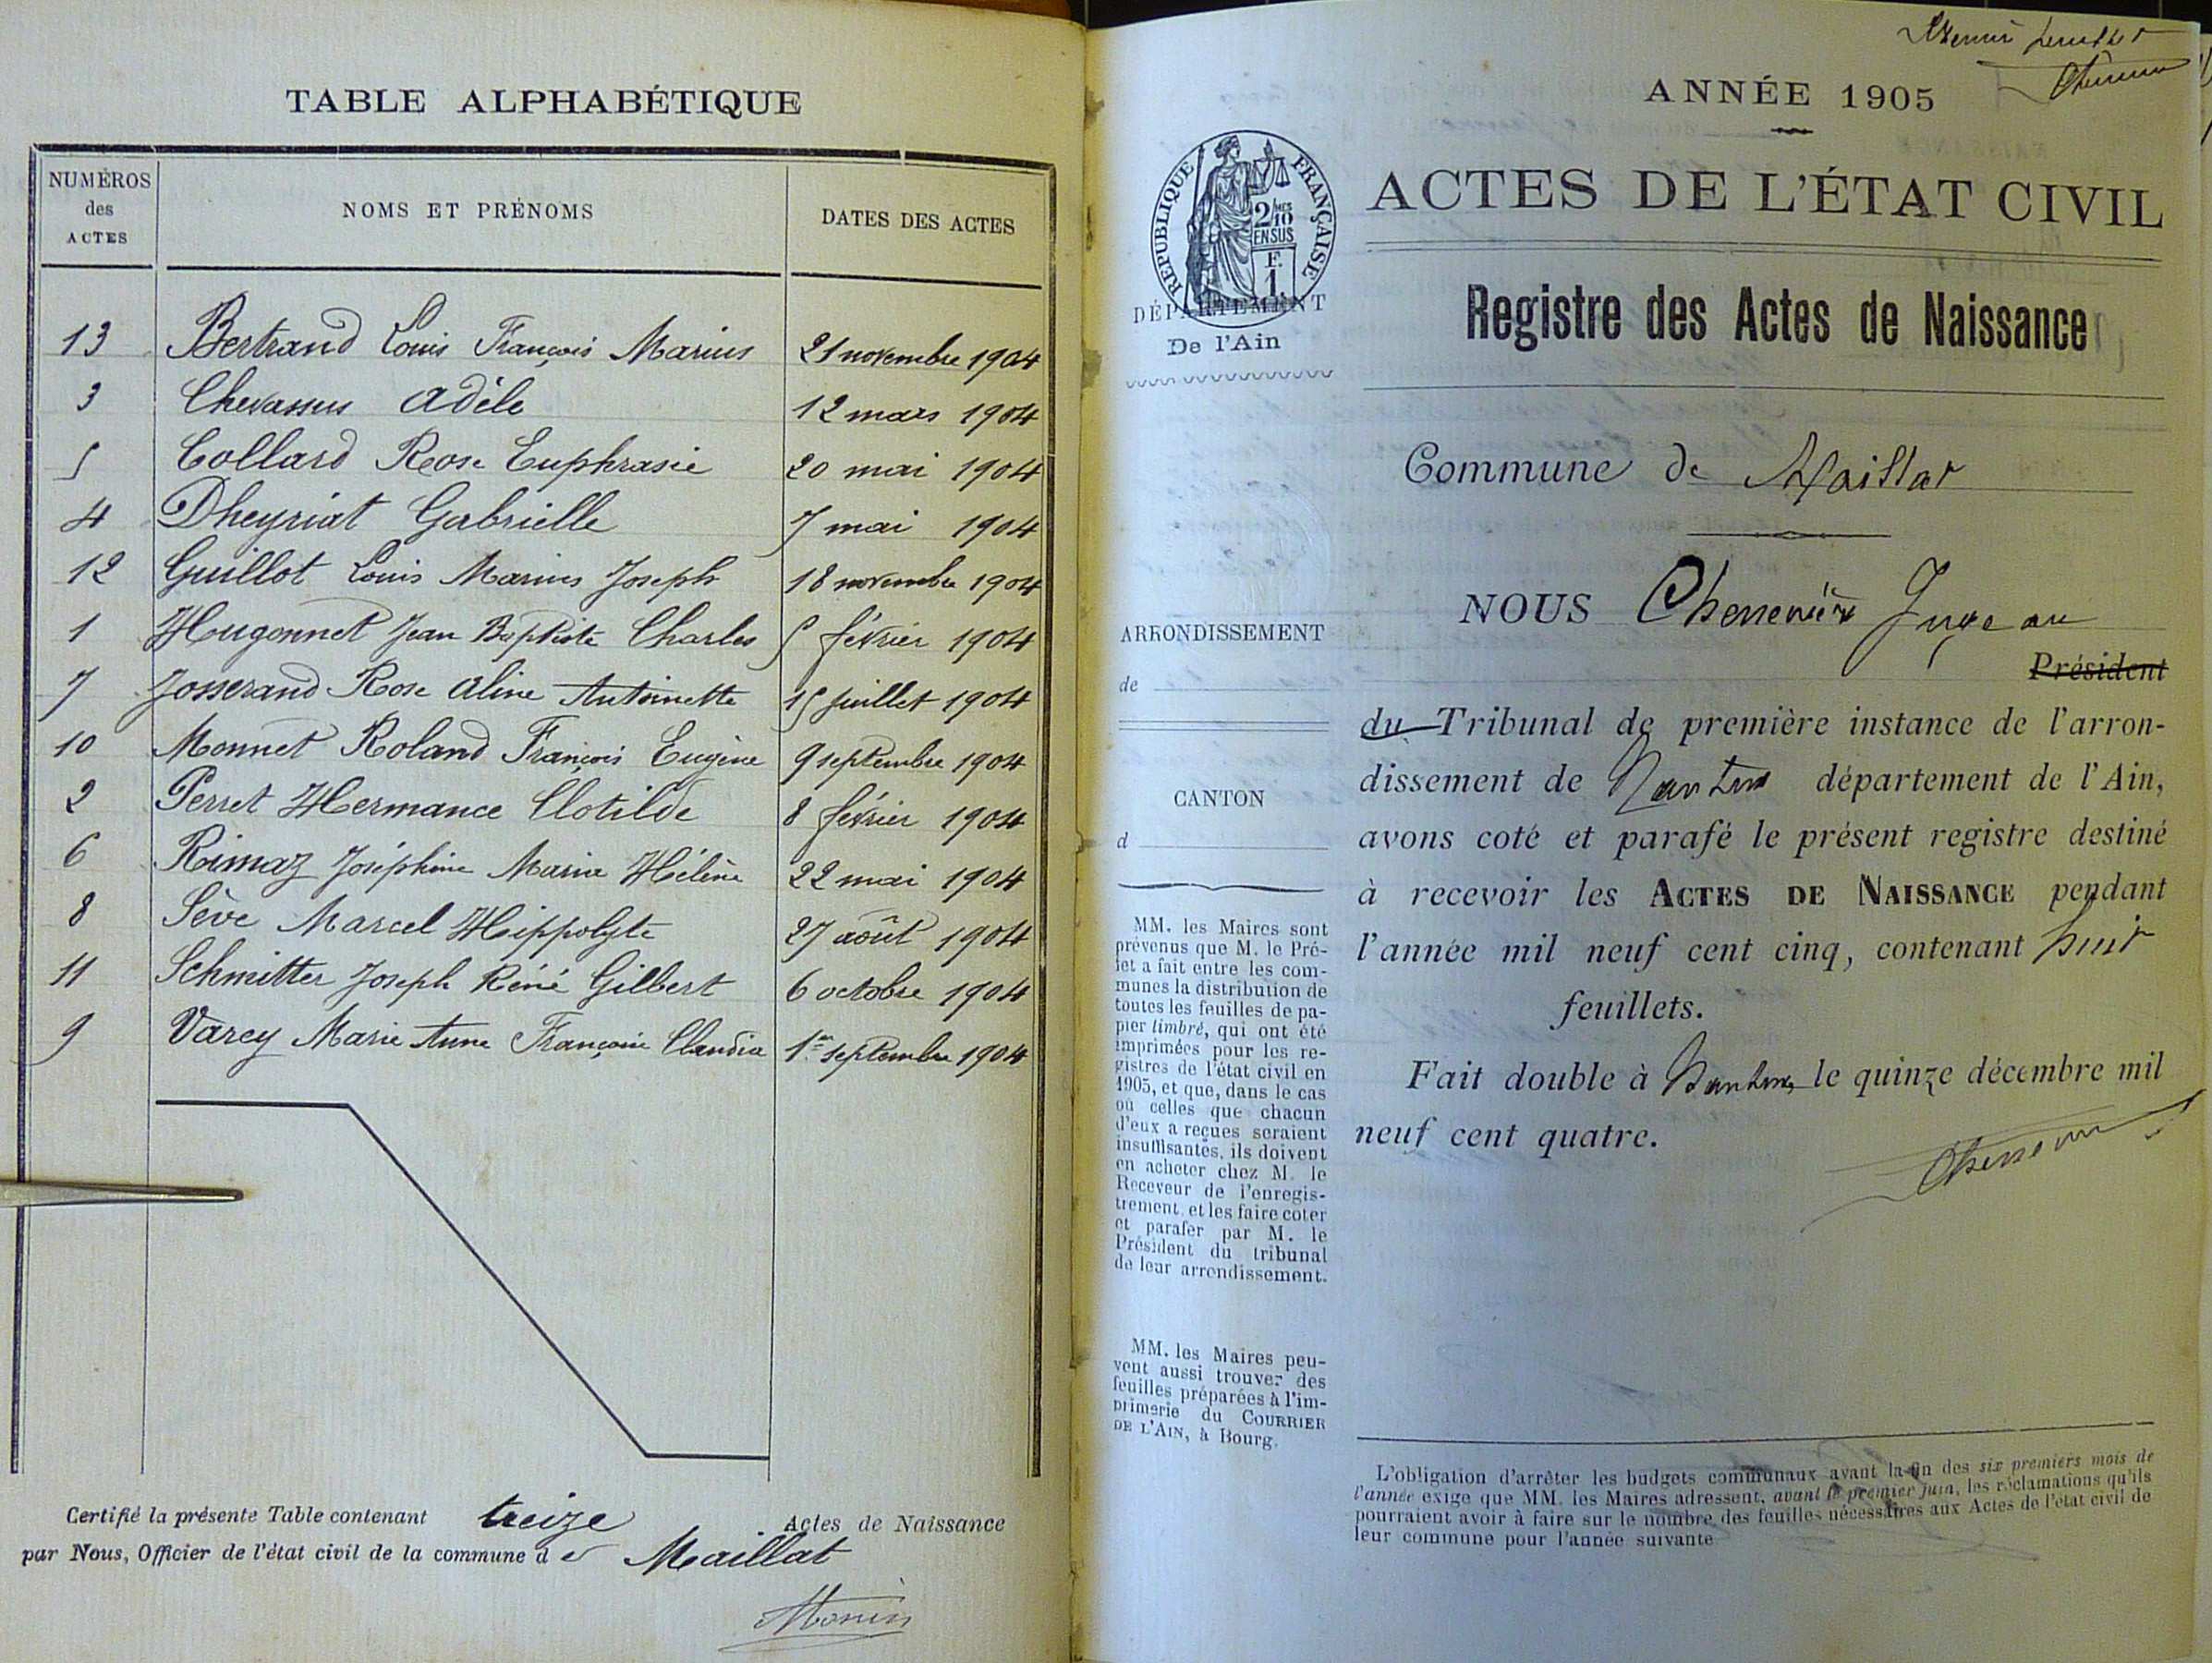 TABLE ALPHABÉTIQUE
NUMÉROS
des
ACTES
NOMS ET PRÉNOMS
DATES DES ACTES
13 Bertrand Louis François Marius 21 novembre 1904
3 Chevassus Adèle 12 mars 1904
5 Collard Rose Euphrasie 20 mai 1904
4 Dheyriat Gabrielle 7 mai 1904
12 Guillot Louis Marius Joseph 18 novembre 1904
1 Hugonnet Jean Baptiste Charles 5 février 1904
7 Josserand Rose Aline Antoinette 15 juillet 1904
10 Monnet Roland François Eugène 9 septembre 1904
2 Perret Hermance Clotilde 8 février 1904
6 Rimaz Joséphine Marie Hélène 22 mai 1904
8 Sève Marcel Hippolyte 27 août 1904
11 Schmitter Joseph Réné Gilbert 6 octobre 1904
9 Varcy Marie Anne Françoise Claudia 1er septembre 1904
Certifié la présente Table contenant treize Actes de Naissance
par Nous, Officier de l'état civil de la commune de Maillat
Monin
feuillet
ANNÉE 1905
RÉPUBLIQUE FRANÇAISE
2/10MES
EN SUS
F.
1
DÉPARTEMENT
De l'Ain
ARRONDISSEMENT
de
CANTON
d
MM. les Maires sont
prévenus que M. le Pré-
fet a fait entre les com-
munes la distribution de
toutes les feuilles de pa-
pier timbré, qui ont été
imprimées pour les re-
gistres de l'état civil en
1905, et que, dans le cas
où celles que chacun
d'eux a reçues seraient
insuffisantes, ils doivent
en acheter chez M. le
Receveur de l'enregis-
trement, et les faire coter
et parafer par M. le
Président du tribunal
de leur arrondissement.
MM. les Maires peu-
vent aussi trouver des
feuilles préparées à l'im-
primerie du COURRIER
DE L'AIN, à Bourg.
ACTES DE L'ÉTAT CIVIL
Registre des Actes de Naissance
Commune de Maillat
NOUS Chenevière Juge au
Président
du Tribunal de première instance de l'arron-
dissement de Nantua département de l'Ain,
avons coté et parafé le présent registre destiné
à recevoir les ACTES DE NAISSANCE pendant
l'année mil neuf cent cinq, contenant huit
feuillets.
Fait double à Nantua, le quinze décembre mil
neuf cent quatre.
L'obligation d'arrêter les budgets communaux avant la fin des six premiers mois de
l'année exige que MM. les Maires adressent, avant le premier juin, les réclamations qu'ils
pourraient avoir à faire sur le nombre des feuilles nécessaires aux Actes de l'état civil de
leur commune pour l'année suivante